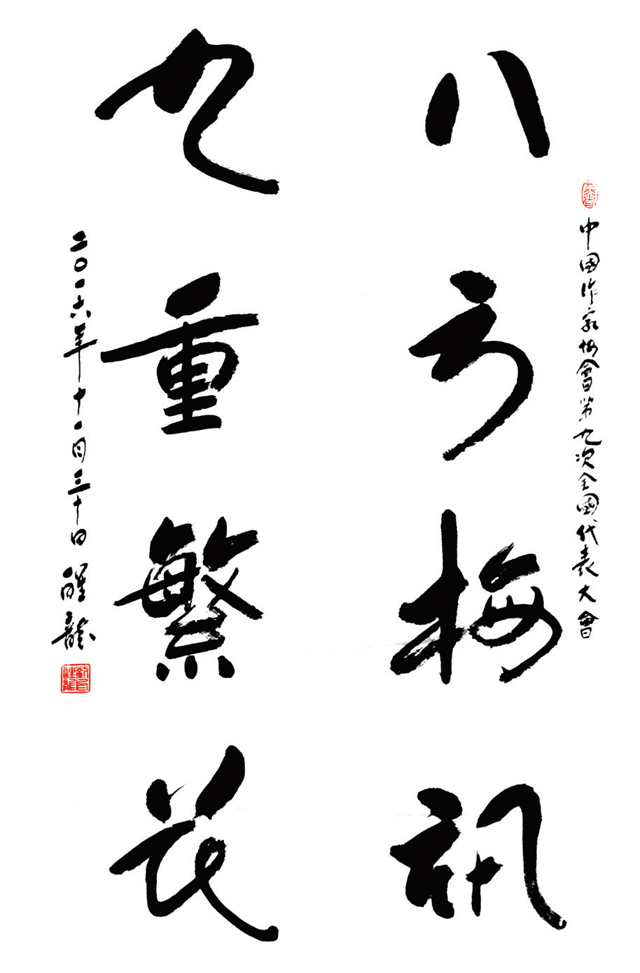 中國作家協會第九次全國代表大會
八方梅訊
九重繁花
二〇一六年十一月三十日 醒龍